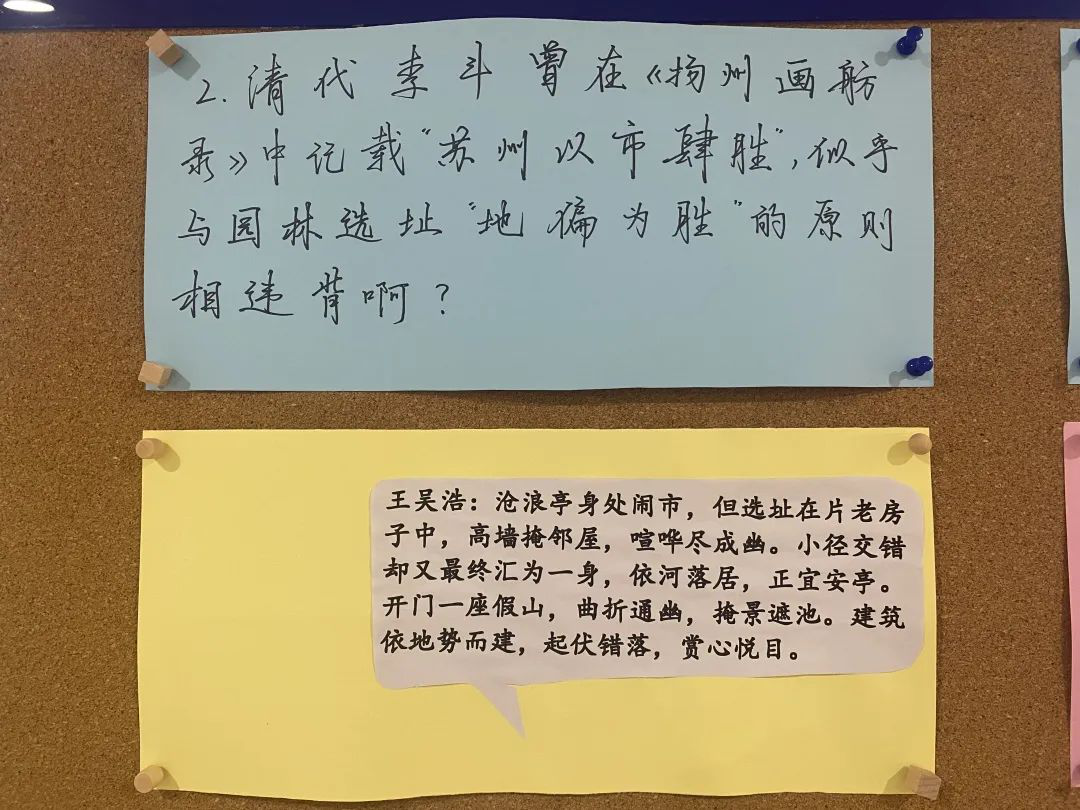 2. 清代李斗曾在《扬州画舫
录》中记载“苏州以市肆胜”,似乎
与园林选址“地偏为胜”的原则
相违背啊?
王吴浩：沧浪亭身处闹市，但选址在片老房
子中，高墙掩邻屋，喧哗尽成幽。小径交错
却又最终汇为一身，依河落居，正宜安亭。
开门一座假山，曲折通幽，掩景遮池。建筑
依地势而建，起伏错落，赏心悦目。